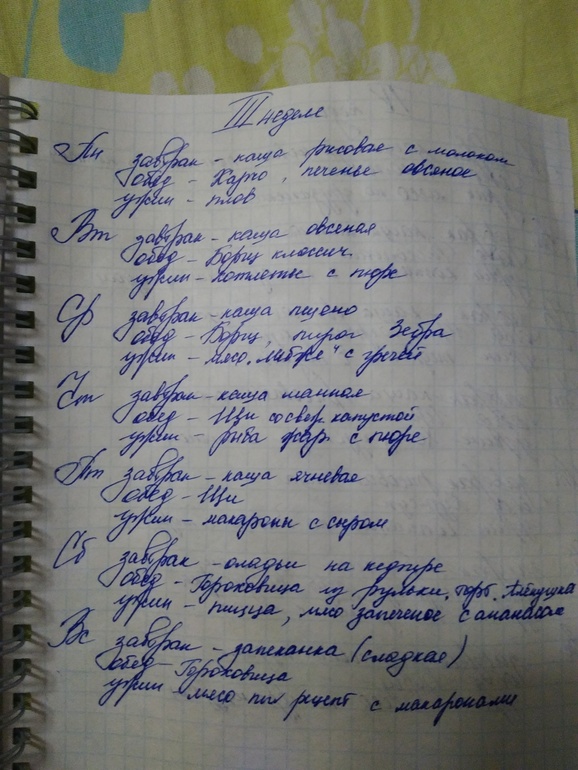 III неделе
Пн завтрак - каша рисовае с молоком
обед - Харчо, печенье овсяное
ужин - плов
Вт завтрак - каша овсеная
обед - Борщ классич.
ужин - котлеты с пюре
Ср завтрак - каша пшено
обед - Борщ, пирог Зебра
ужин - мясо "Либже" с гречей
Чт завтрак - каша манная
обед - Щи со свеж. капустой
ужин - рыба жар. с пюре
Пт завтрак - каша ячневае
обед - Щи
ужин - макароны с сыром
Сб завтрак - оладьи на кефире
обед - Гороховица из рульки, торт.
ужин - пицца, мясо запеченое с ананасом
Вс завтрак - запеканка (сладкая)
обед - Гороховица
ужин - мясо рецепт с макаронами